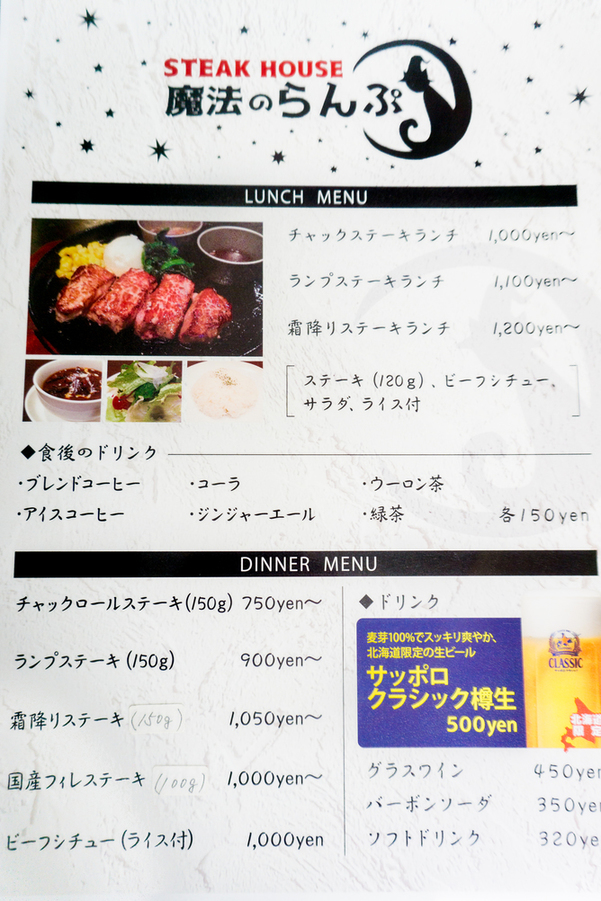 STEAK HOUSE
魔法のらんぷ
LUNCH MENU
チャックステーキランチ 1,000yen〜
ランプステーキランチ 1,100yen〜
霜降りステーキランチ 1,200yen〜
ステーキ(120g)、ビーフシチュー、
サラダ、ライス付
◆食後のドリンク
・ブレンドコーヒー ・コーラ ・ウーロン茶
・アイスコーヒー ・ジンジャーエール ・緑茶 各150yen
DINNER MENU
チャックロールステーキ(150g) 750yen〜
ランプステーキ(150g) 900yen〜
霜降りステーキ(150g) 1,050yen〜
国産フィレステーキ(100g) 1,000yen〜
ビーフシチュー(ライス付) 1,000yen
◆ドリンク
麦芽100%でスッキリ爽やか、
北海道限定の生ビール
サッポロ
クラシック樽生
500yen
CLASSIC
北海道
限定
グラスワイン 450yen
バーボンソーダ 350yen
ソフトドリンク 320yen